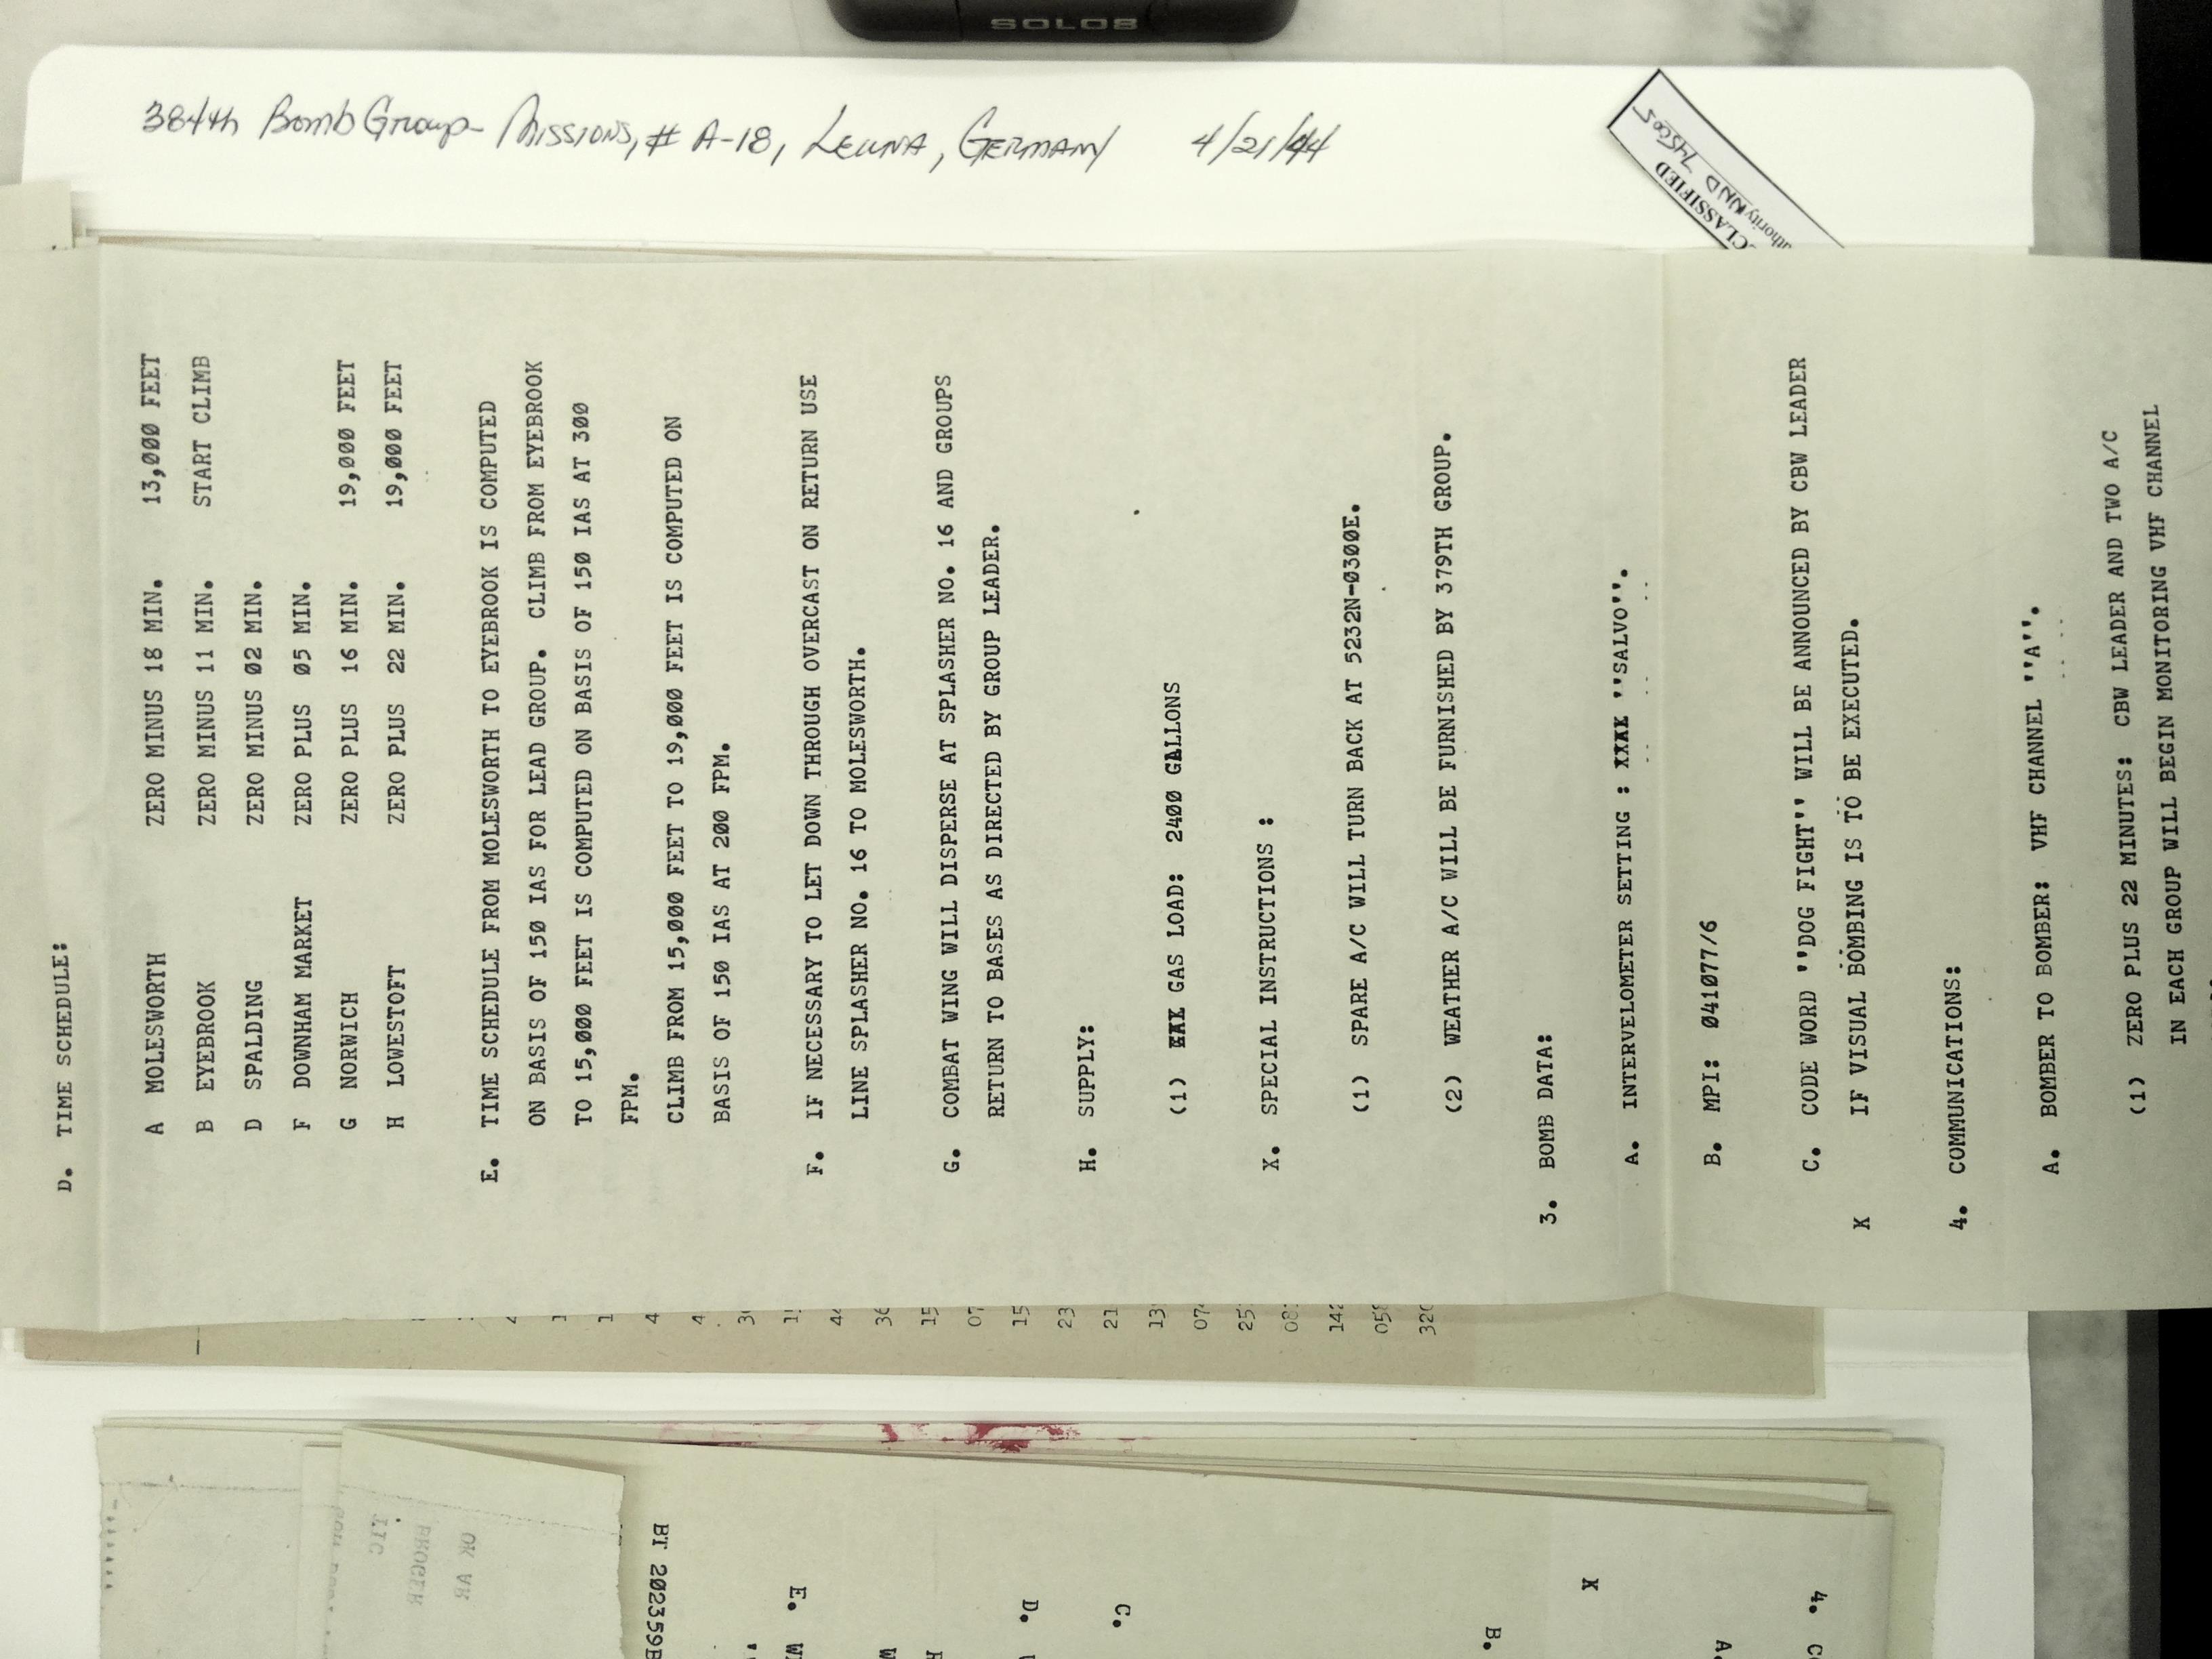 SOLOS
384th Bomb Group - Missions, # A-18, Leuna, Germany 4/21/44
CLASSIFIED
NND 745005
D. TIME SCHEDULE:
A MOLESWORTH ZERO MINUS 18 MIN. 13,000 FEET
B EYEBROOK ZERO MINUS 11 MIN. START CLIMB
D SPALDING ZERO MINUS 02 MIN.
F DOWNHAM MARKET ZERO PLUS 05 MIN.
G NORWICH ZERO PLUS 16 MIN. 19,000 FEET
H LOWESTOFT ZERO PLUS 22 MIN. 19,000 FEET
E. TIME SCHEDULE FROM MOLESWORTH TO EYEBROOK IS COMPUTED
ON BASIS OF 150 IAS FOR LEAD GROUP. CLIMB FROM EYEBROOK
TO 15,000 FEET IS COMPUTED ON BASIS OF 150 IAS AT 300
FPM.
CLIMB FROM 15,000 FEET TO 19,000 FEET IS COMPUTED ON
BASIS OF 150 IAS AT 200 FPM.
F. IF NECESSARY TO LET DOWN THROUGH OVERCAST ON RETURN USE
LINE SPLASHER NO. 16 TO MOLESWORTH.
G. COMBAT WING WILL DISPERSE AT SPLASHER NO. 16 AND GROUPS
RETURN TO BASES AS DIRECTED BY GROUP LEADER.
H. SUPPLY:
(1) GAS LOAD: 2400 GALLONS
X. SPECIAL INSTRUCTIONS :
(1) SPARE A/C WILL TURN BACK AT 5232N-0300E.
(2) WEATHER A/C WILL BE FURNISHED BY 379TH GROUP.
3. BOMB DATA:
A. INTERVELOMETER SETTING : XXXX ''SALVO''.
B. MPI: 041077/6
C. CODE WORD ''DOG FIGHT'' WILL BE ANNOUNCED BY CBW LEADER
X IF VISUAL BOMBING IS TO BE EXECUTED.
4. COMMUNICATIONS:
A. BOMBER TO BOMBER: VHF CHANNEL ''A''.
(1) ZERO PLUS 22 MINUTES: CBW LEADER AND TWO A/C
IN EACH GROUP WILL BEGIN MONITORING VHF CHANNEL
15
07
15
23
21
13
07
25
08
142
05
320
BT 202359B
E.
D.
C.
B.
X
4.
A.